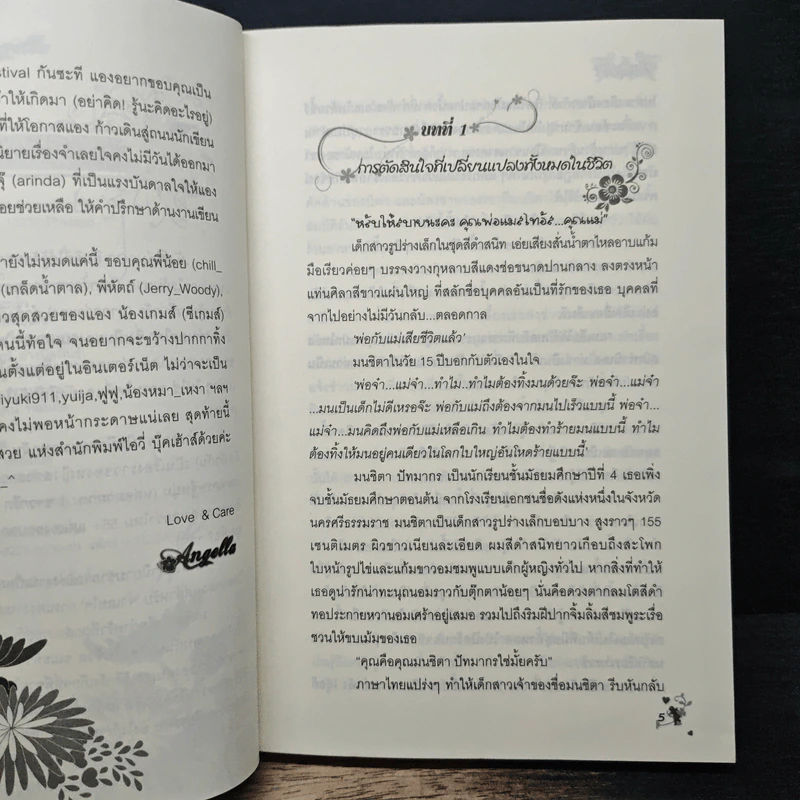 stival กันซะที แองอยากขอบคุณเป็น
ทำให้เกิดมา (อย่าคิด! รู้นะคิดอะไรอยู่)
ที่ให้โอกาสแอง ก้าวเดินสู่ถนนนักเขียน
นิยายเรื่องจำเลยใจคงไม่มีวันได้ออกมา
จุ๊ (arinda) ที่เป็นแรงบันดาลใจให้แอง
อยช่วยเหลือ ให้คำปรึกษาด้านงานเขียน
ายังไม่หมดแค่นี้ ขอบคุณพี่น้อย (chill_
(เกล็ดน้ำตาล), พี่หัตถ์ (Jerry_Woody),
วสุดสวยของแอง น้องเกมส์ (ซีเกมส์)
คนนี้ท้อใจ จนอยากจะขว้างปากกาทิ้ง
นตั้งแต่อยู่ในอินเตอร์เน็ต ไม่ว่าจะเป็น
iyuki911,yuija,ฟูฟู,น้องหมา_เหงา ฯลฯ
คงไม่พอหน้ากระดาษแน่เลย สุดท้ายนี้
วย แห่งสำนักพิมพ์ไอวี่ บุ๊คเฮ้าส์ด้วยค่ะ
_^
Love & Care
Angella
บทที่ 1
การตัดสินใจที่เปลี่ยนแปลงทั้งหมดในชีวิต
"หลับให้สบายนะคะ คุณพ่อแมธไทอัส...คุณแม่"
เด็กสาวรูปร่างเล็กในชุดสีดำสนิท เอ่ยเสียงสั่นน้ำตาไหลอาบแก้ม
มือเรียวค่อยๆ บรรจงวางกุหลาบสีแดงช่อขนาดปานกลาง ลงตรงหน้า
แท่นศิลาสีขาวแผ่นใหญ่ ที่สลักชื่อบุคคลอันเป็นที่รักของเธอ บุคคลที่
จากไปอย่างไม่มีวันกลับ...ตลอดกาล
'พ่อกับแม่เสียชีวิตแล้ว'
มนชิตาในวัย 15 ปีบอกกับตัวเองในใจ
'พ่อจ๋า...แม่จ๋า...ทำไม...ทำไมต้องทิ้งมนด้วยจ๊ะ พ่อจ๋า...แม่จ๋า
...มนเป็นเด็กไม่ดีเหรอจ๊ะ พ่อกับแม่ถึงต้องจากมนไปเร็วแบบนี้ พ่อจ๋า...
แม่จ๋า...มนคิดถึงพ่อกับแม่เหลือเกิน ทำไมต้องทำร้ายมนแบบนี้ ทำไม
ต้องทิ้งให้มนอยู่คนเดียวในโลกใบใหญ่อันโหดร้ายแบบนี้'
มนชิตา ปัทมากร เป็นนักเรียนชั้นมัธยมศึกษาปีที่ 4 เธอเพิ่ง
จบชั้นมัธยมศึกษาตอนต้น จากโรงเรียนเอกชนชื่อดังแห่งหนึ่งในจังหวัด
นครศรีธรรมราช มนชิตาเป็นเด็กสาวรูปร่างเล็กบอบบาง สูงราวๆ 155
เซนติเมตร ผิวขาวเนียนละเอียด ผมสีดำสนิทยาวเกือบถึงสะโพก
ใบหน้ารูปไข่และแก้มขาวอมชมพูแบบเด็กผู้หญิงทั่วไป หากสิ่งที่ทำให้
เธอดูน่ารักน่าทะนุถนอมราวกับตุ๊กตาน้อยๆ นั่นคือดวงตากลมโตสีดำ
ทอประกายหวานอมเศร้าอยู่เสมอ รวมไปถึงริมฝีปากจิ้มลิ้มสีชมพูระเรื่อ
ชวนให้ขบเม้มของเธอ
"คุณคือคุณมนชิตา ปัทมากรใช่มั้ยครับ"
ภาษาไทยแปร่งๆ ทำให้เด็กสาวเจ้าของชื่อมนชิตา รีบหันกลับ
5